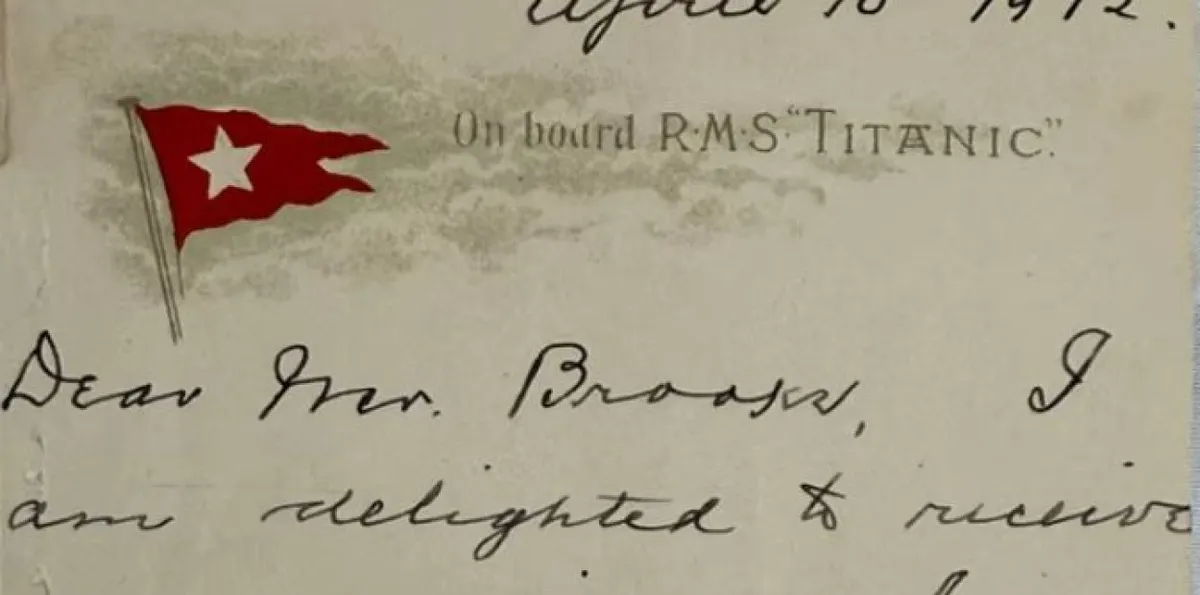 April 10 1912.
On board R·M·S·"TITANIC".
Dear Mr. Brooks, I
am delighted to receive